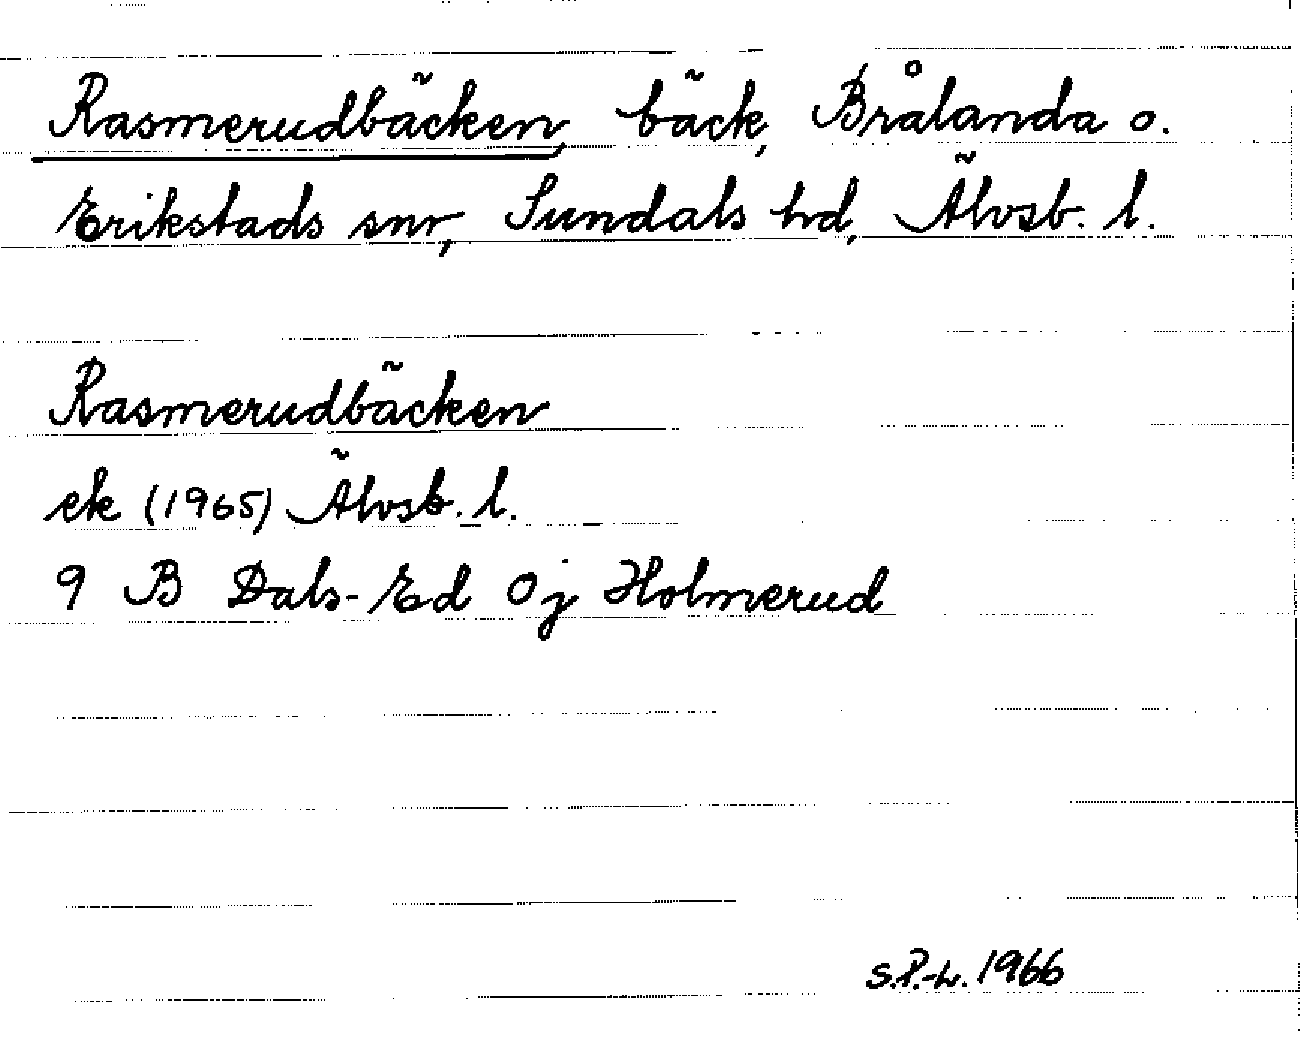 Rasmerudbäcken, bäck, Brålanda o.
Erikstads snr, Sundals hd, Älvsb. l.
Rasmerudbäcken
ek (1965) Älvsb. l.
9 B Dals-Ed 0j Holmerud
S.P.-L. 1966